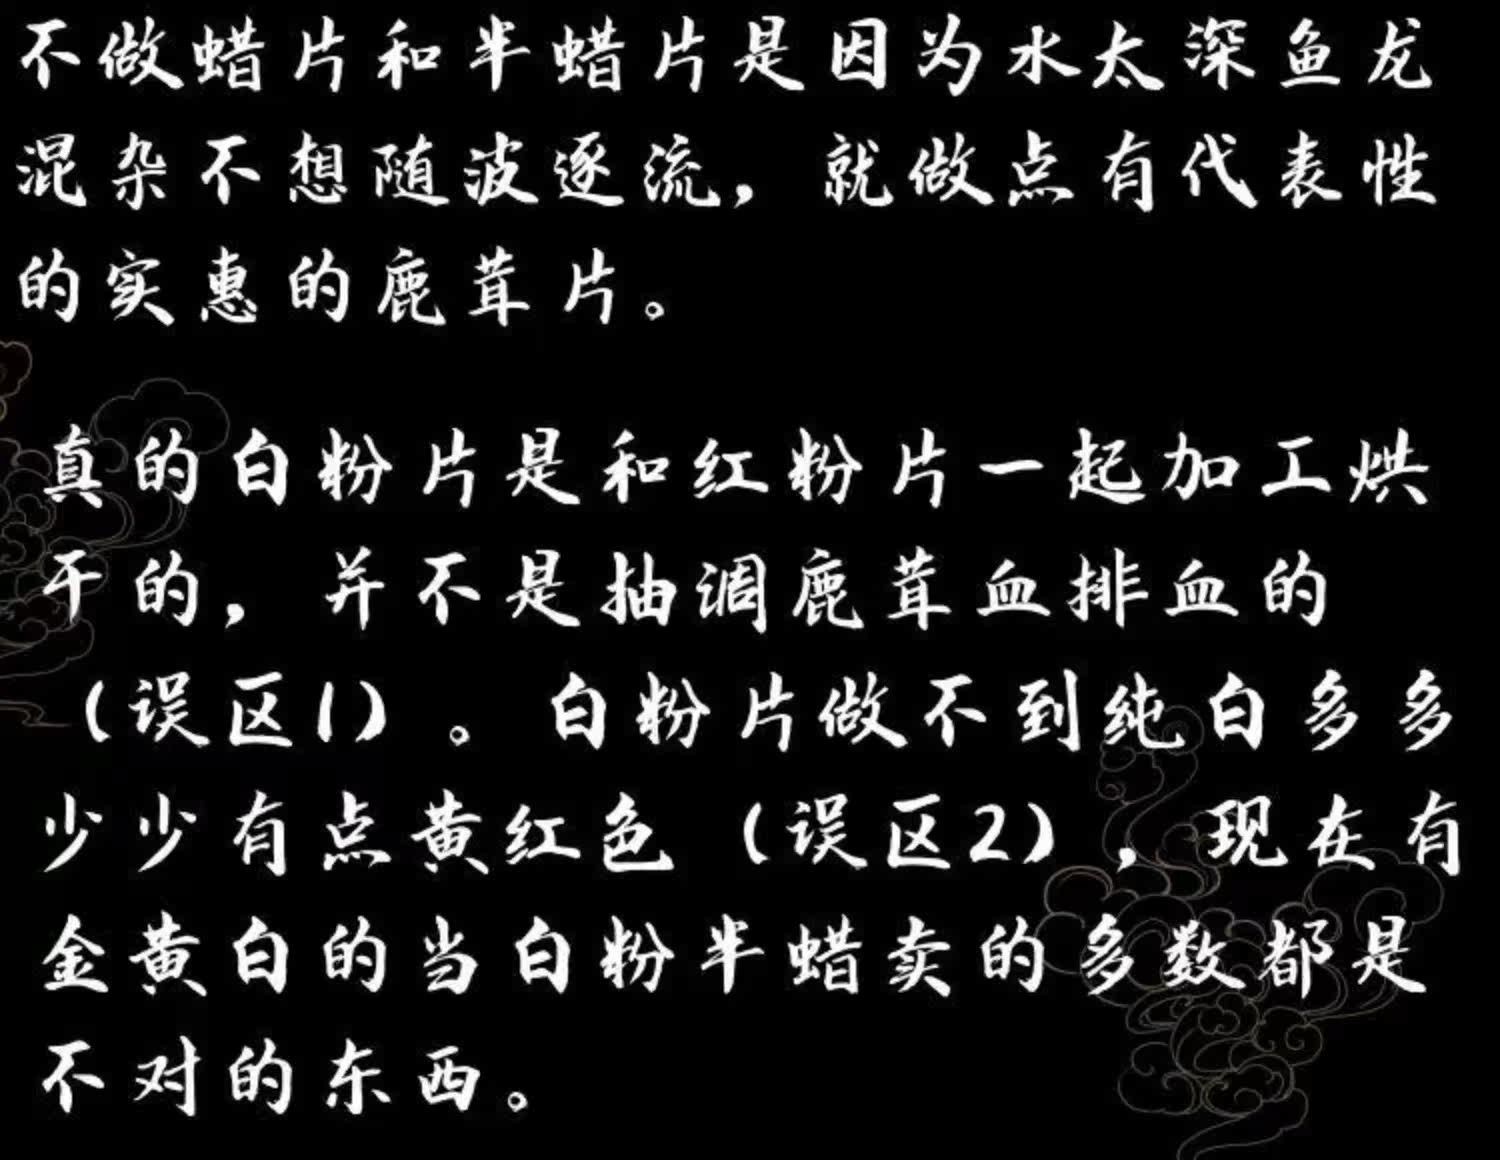 不做蜡片和半蜡片是因为水太深鱼龙
混杂不想随波逐流，就做点有代表性
的实惠的鹿茸片。
真的白粉片是和红粉片一起加工烘
干的，并不是抽调鹿茸血排血的
（误区1）。白粉片做不到纯白多多
少少有点黄红色（误区2），现在有
金黄白的当白粉半蜡卖的多数都是
不对的东西。